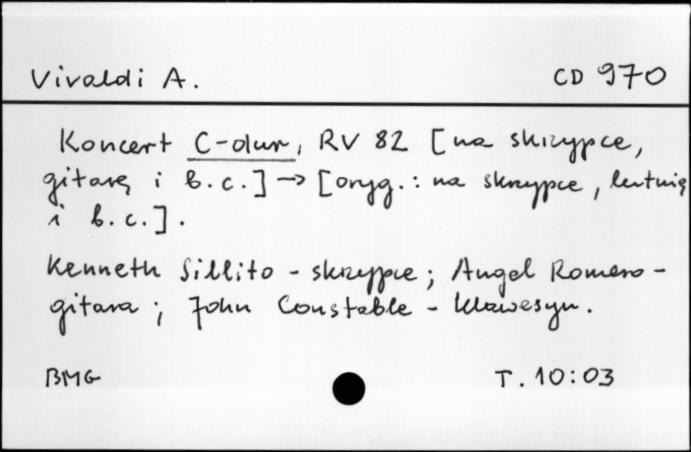 Vivaldi A. CD 970
Koncert C-dur, RV 82 [na skrzypce,
gitarę i b.c.] → [oryg.: na skrzypce, lutnię
i b.c.].
Kenneth Sillito - skrzypce; Angel Romero -
gitara; John Constable - klawesyn.
BMG T. 10:03